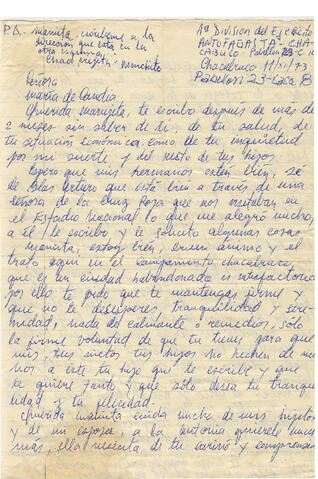 P.D. mamita, escribeme a la
dirección que está en la
otra
Chao viejita: Munchito
1ª División del Ejército
ANTOFAGASTA - CHA-
CABUCO - Pabellón 23-C
Chacabuco 11/XI/73
Pabellón 23 - Casa 8
Señora
María de Candia.
Querida mamita, te escribo después de más de
2 meses sin saber de ti, de tu salud, de
tu situación económica, como de tu inquietud
por mi suerte y del resto de tus hijos.
Espero que mis hermanos estén bien, sé
de Blas Arturo que está bien a través de una
señora de la Cruz Roja que nos visitaba en
el Estadio Nacional lo que me alegró mucho,
a él le escribo y le solicito algunas cosas
Mamita, estoy bien, buen ánimo y el
trato aquí en el campamento chacabuco
que es una ciudad abandonada es satisfactorio
por ello te pido que te mantengas firme y
que no te desesperes, tranquilidad y sere-
nidad, nada de calmante o remedios, sólo
la firme voluntad de que tu tienes para que
mis, tus nietos tus hijos no hechen de me
nos a este tu hijo que te escribe y que
te quiere tanto y que sólo desea tu tranqui
lidad y tu felicidad.
Querida mamita cuida mucho de mis hijitos
y de mi esposa, a la Antonia quierele mucho
más, ella necesita de tu cariño y comprensión